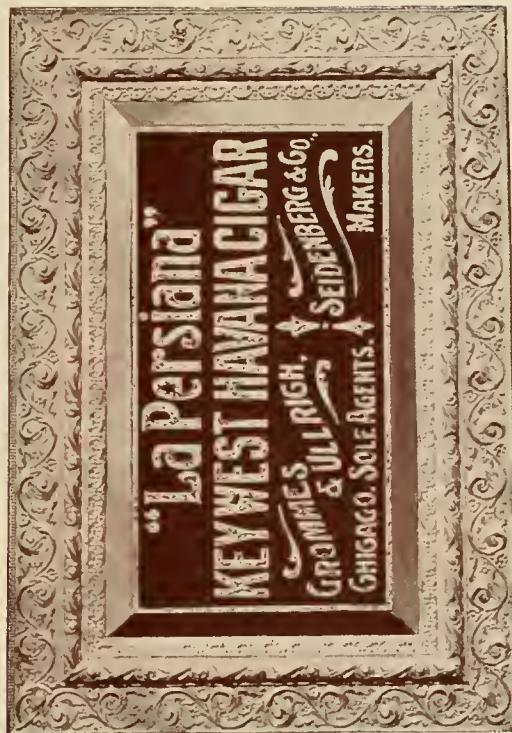 “La Persiana”
KEY WEST HAVANA CIGAR
GROMMES
& ULLRICH,
CHICAGO. SOLE AGENTS.
SEIDENBERG & CO.,
MAKERS.